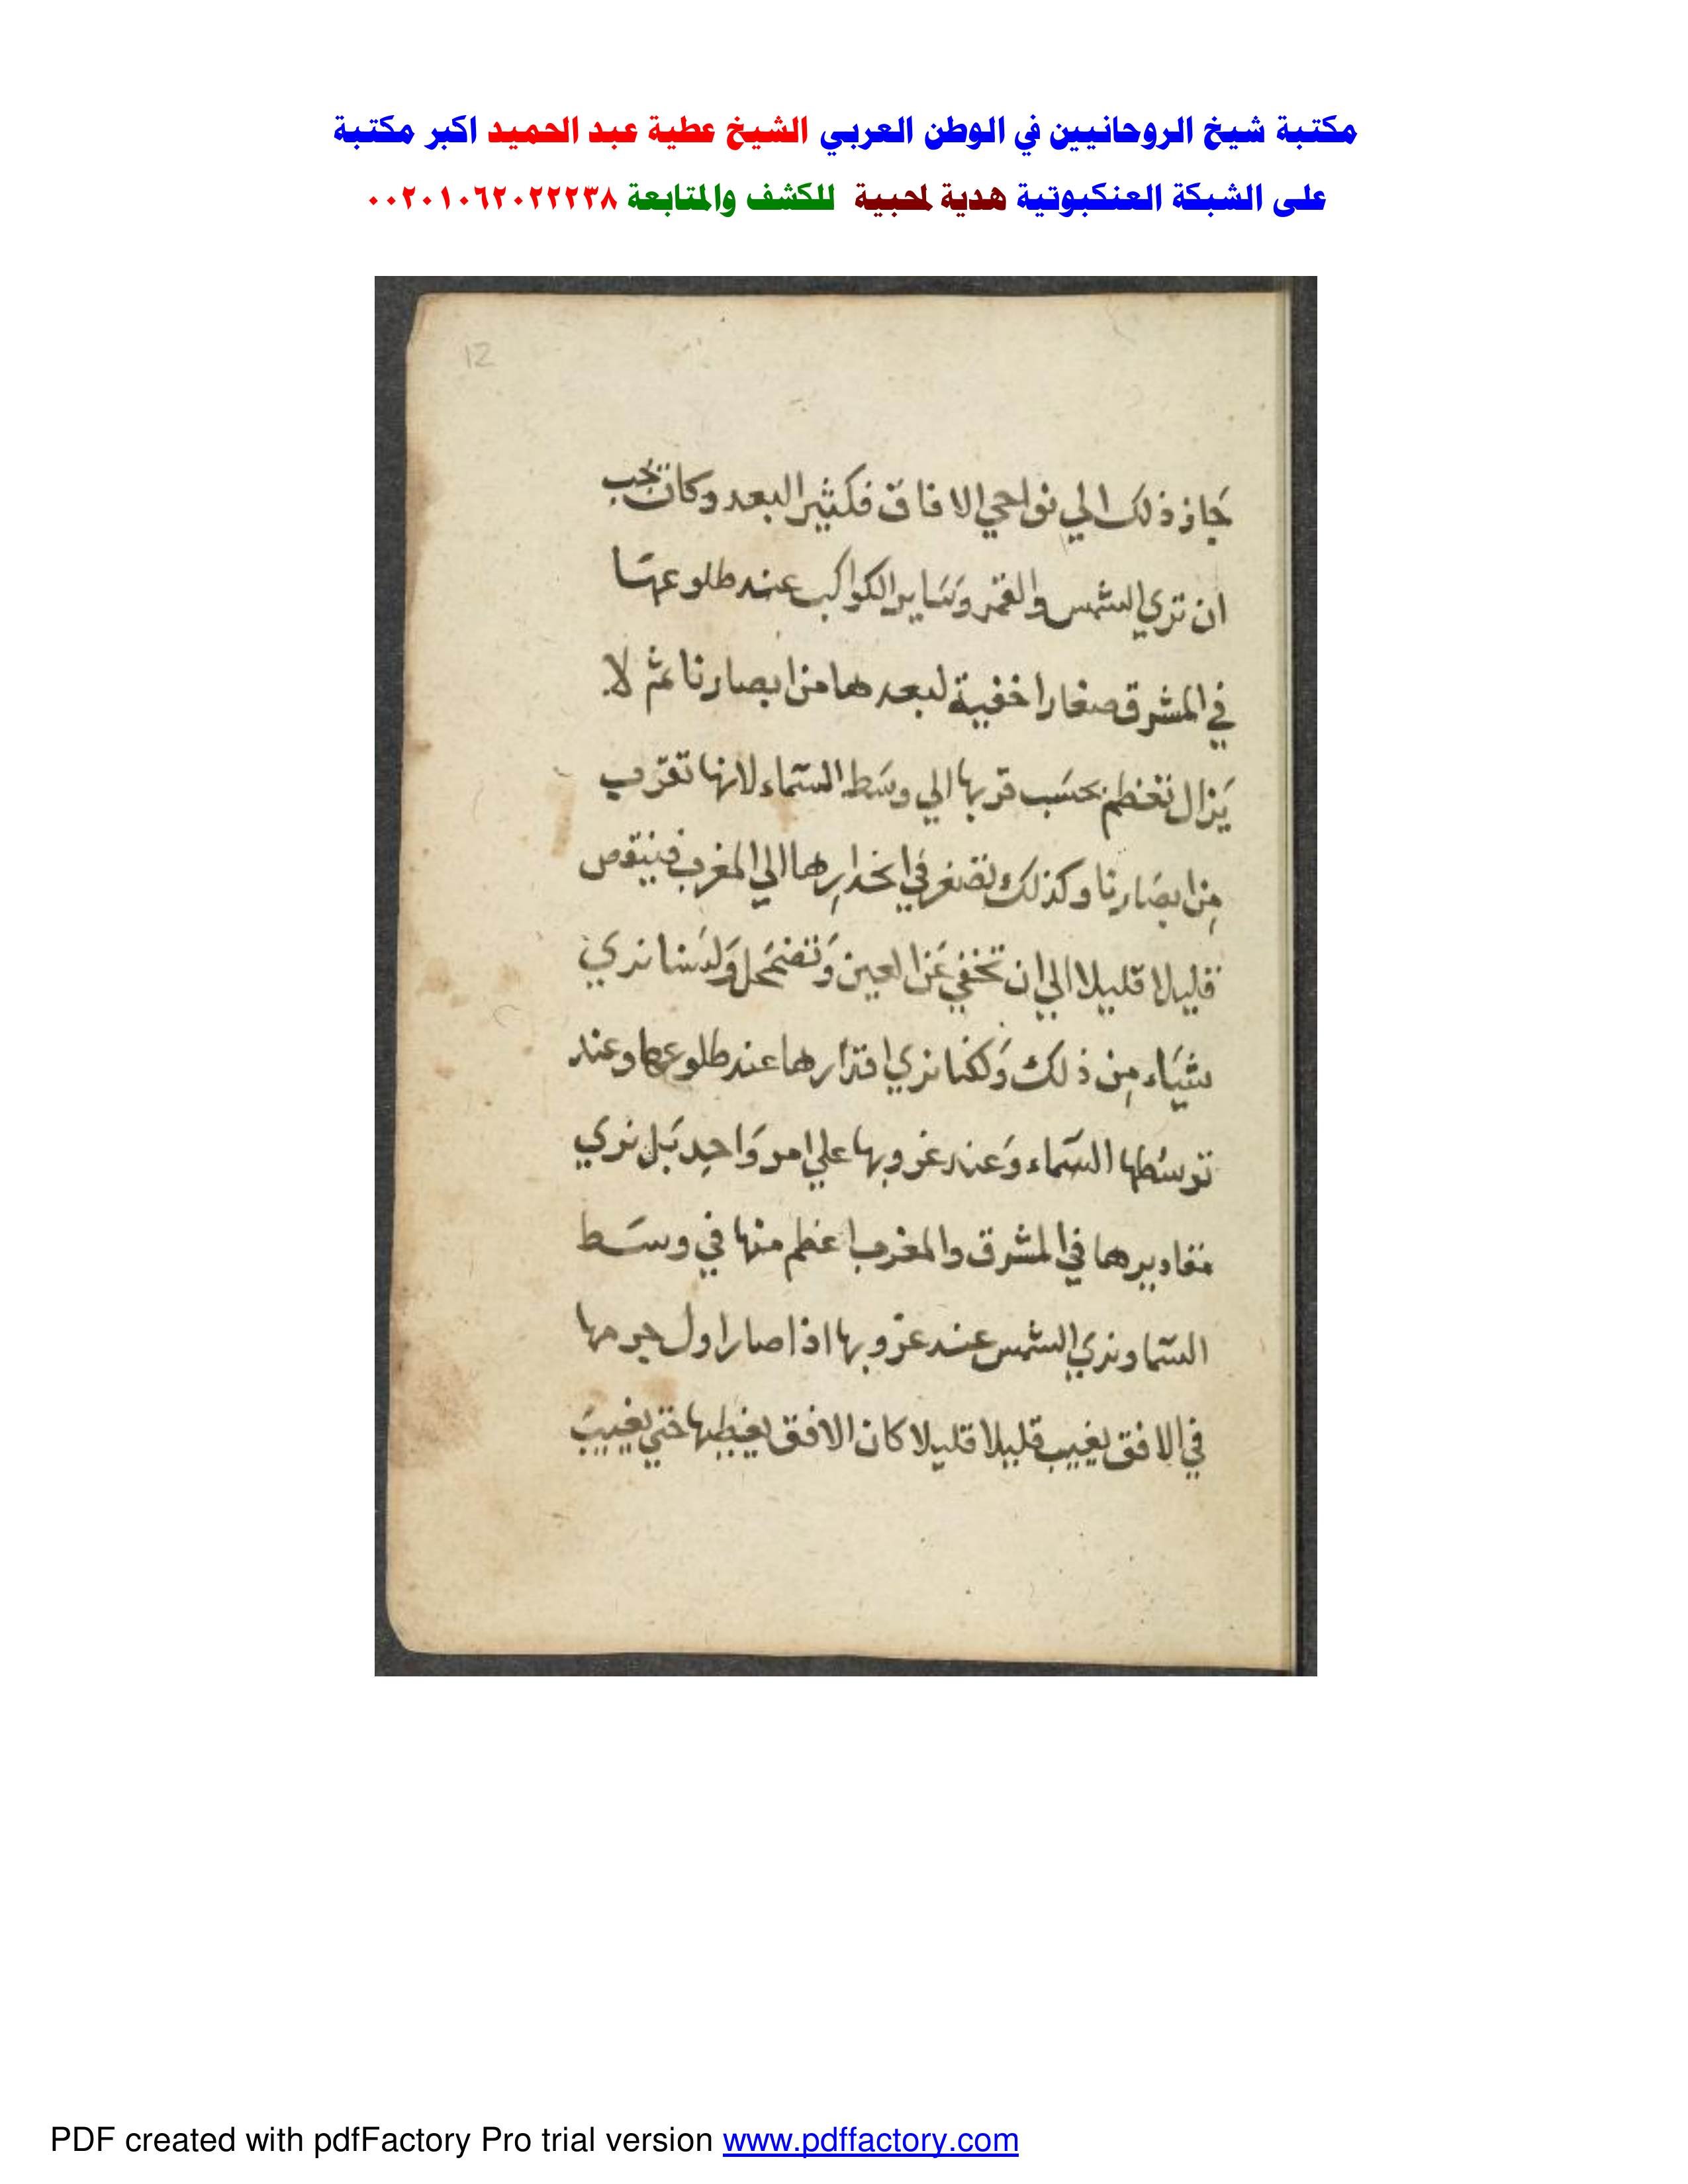 مكتبة شيخ الروحانيين في الوطن العربي الشيخ عطية عبد الحميد اكبر مكتبة
على الشبكة العنكبوتية هدية لمحبية للكشف والمتابعة ٠٠٢٠١٠٦٢٠٢٢٢٣٨
12
جَاز ذلك الي نواحي الافاق فكثير البعد وكان يجب
ان تري الشمس والقمر وسَاير الكواكب عند طلوعهَا
في المشرق صغارا خفية لبعدها من ابصارنا ثم لا
يَزال تعظم بحسَب قربها الي وسَط السّماء لانها تقرب
مِن ابصَارنا وكذلك تصغر في انحدارِها الي المغرب فينتقص
قليلا قليلا الي ان تخفي عَن العين وَتضمحَل وَلسَنا نري
شيَاء مِن ذلك وَلكنا نري اقدَارها عند طلوعها وعند
توسّطها السّماء وَعند غروبها علي امر وَاحِد بَل نري
مقاديرها في المشرق والمغرب اعظم منها في وسَط
السّما ونري الشمس عند غروبها اذا صار اول جرمها
في الافق يغيب قليلا قليلا كان الافق يغطيها حتي يغيبَ
PDF created with pdfFactory Pro trial version www.pdffactory.com